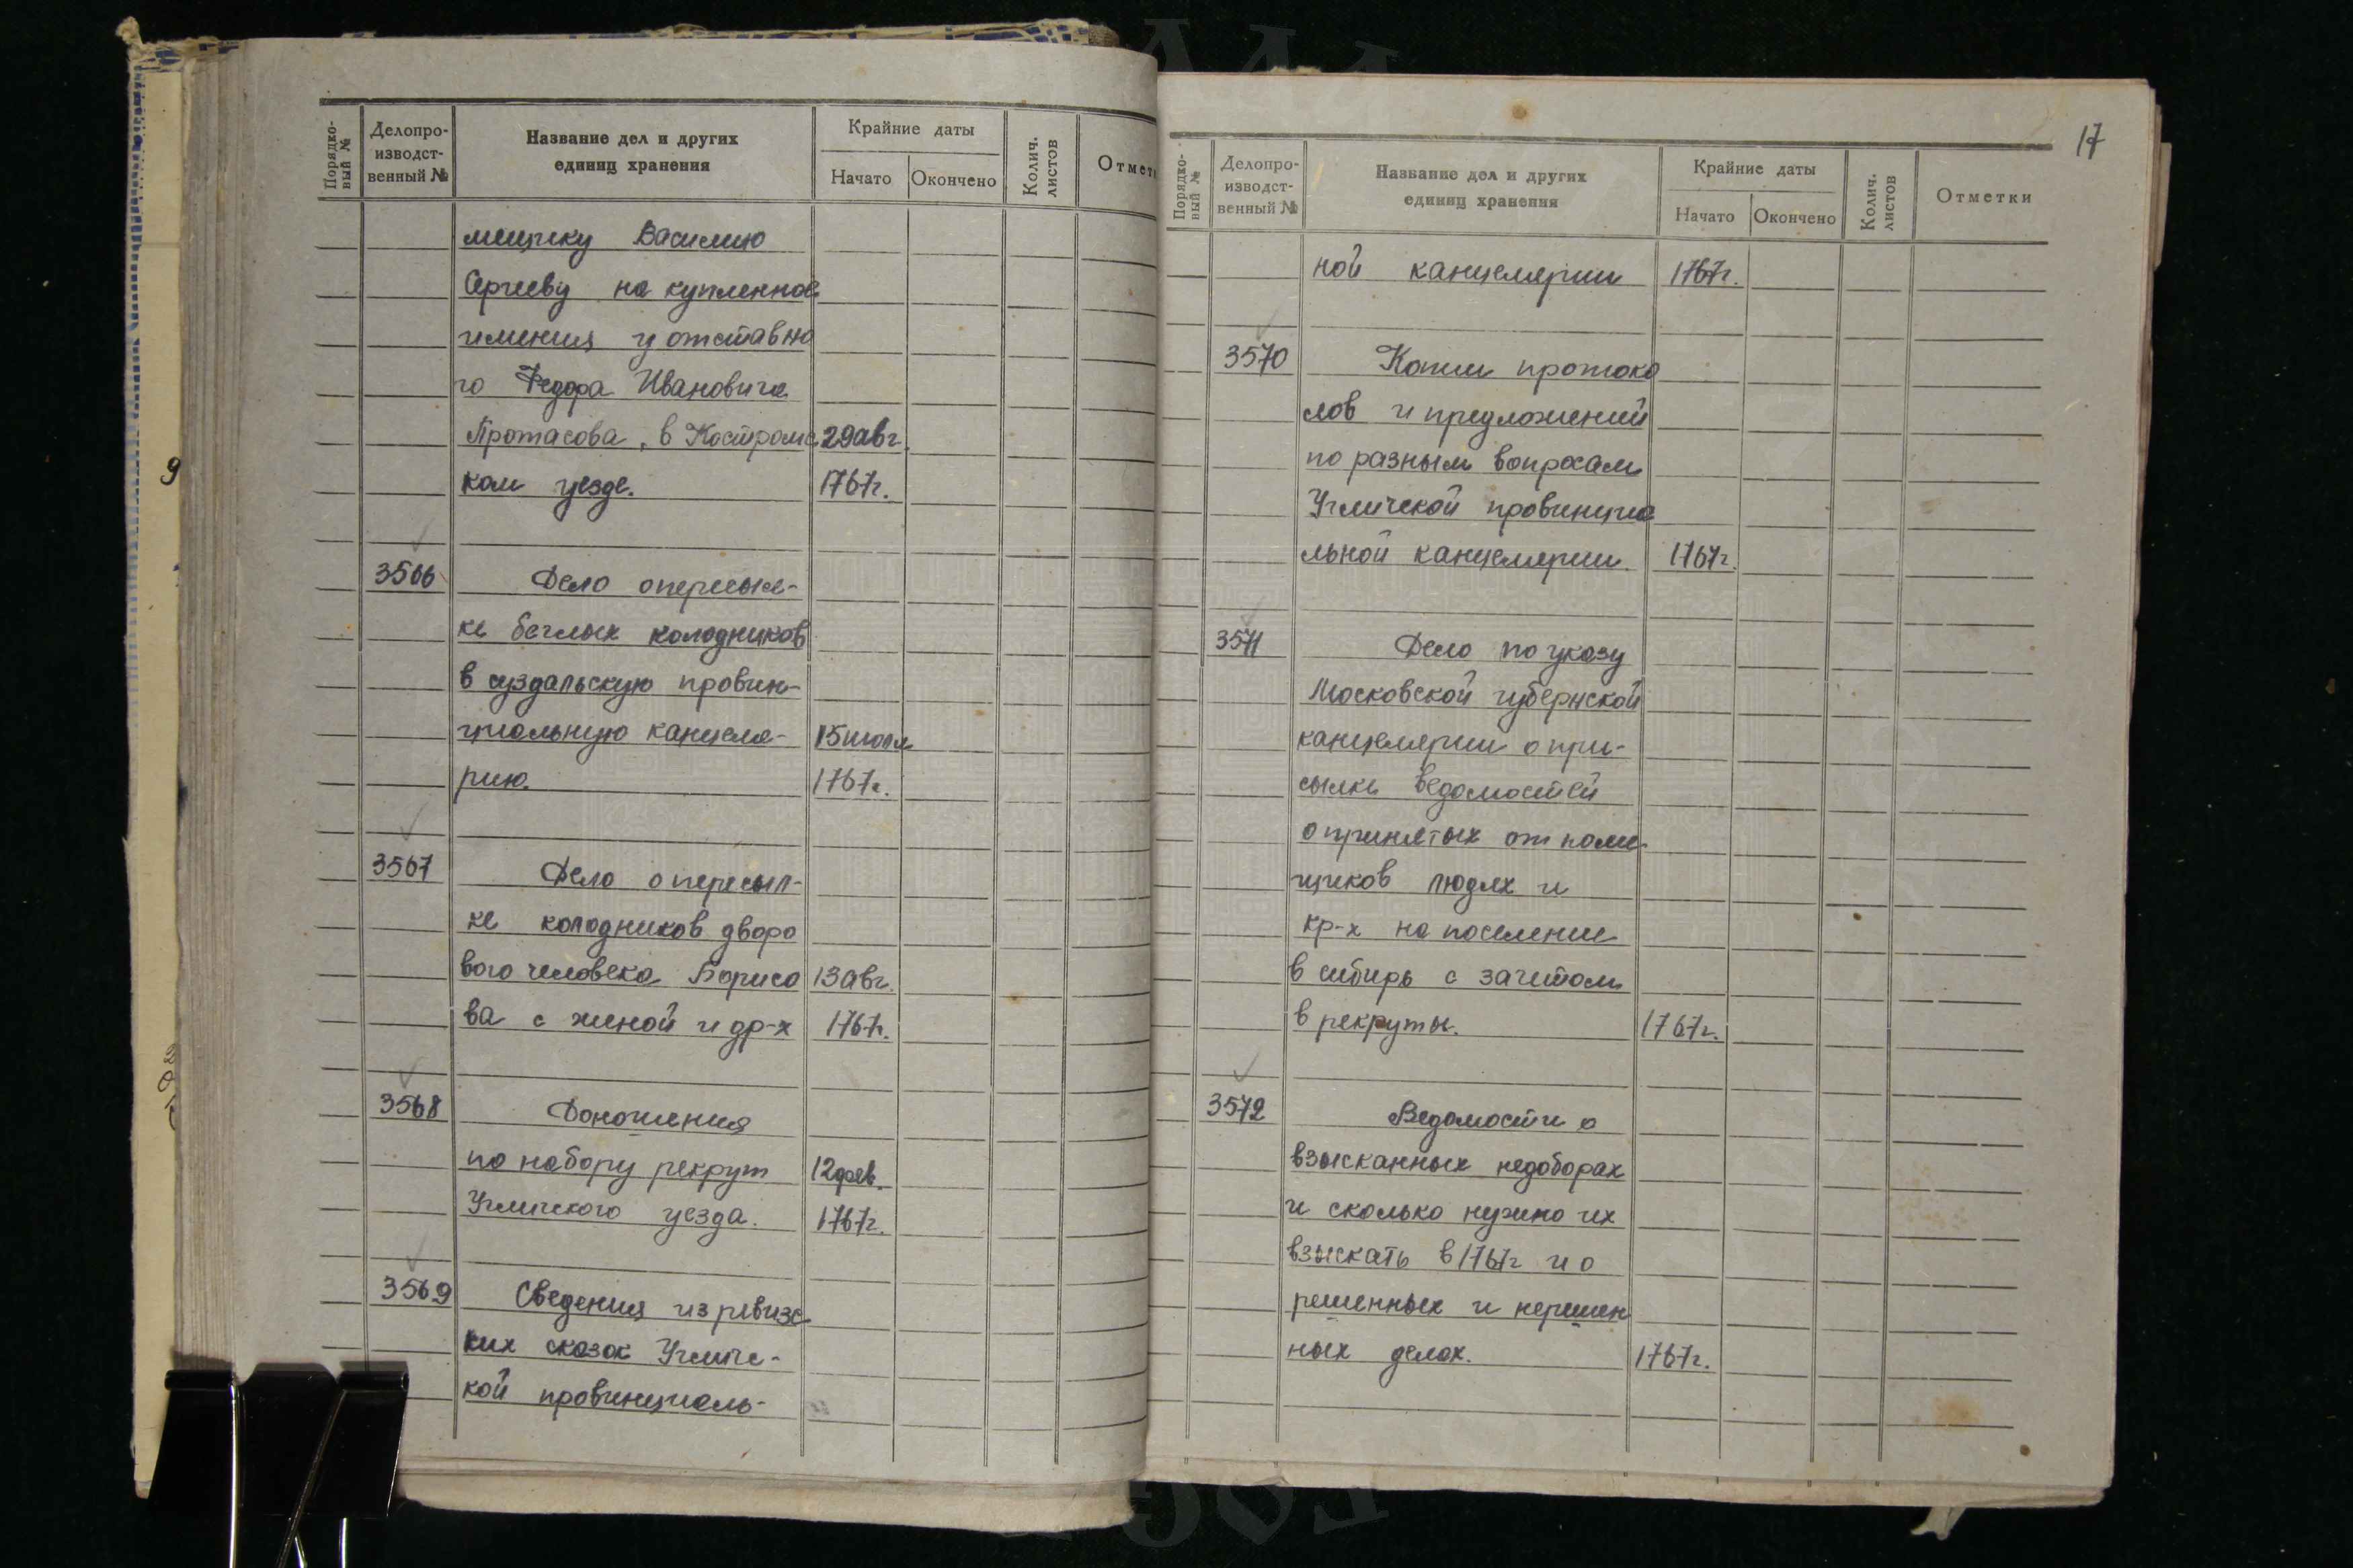 Порядко-
вый №
Делопро-
изводст-
венный №
Название дел и других
единиц хранения
Крайние даты
Начато
Окончено
Колич.
листов
Отмет
мещику Василию
Сергееву на купленное
имения у отставно
го Федора Ивановича
Протасова, в Костромс 29 авг.
ком уезде. 1767г.
3566 Дело о пересыл-
ке беглых колодников
в суздальскую провин-
циальную канцеля- 15 июля
рию. 1767г.
3567 Дело о пересыл-
ке колодников дворо
вого человека Борисо 13 авг.
ва с женой и др-х 1767г.
3568 Доношения
по набору рекрут 12 фев.
Угличского уезда. 1767г.
3569 Сведения из ревизс
ких сказок Угличс-
кой провинциаль-
17
Порядко-
вый №
Делопро-
изводст-
венный №
Название дел и других
единиц хранения
Крайние даты
Начато
Окончено
Колич.
листов
Отметки
ной канцелярии 1767г.
3570 Копии протоко
лов и предложений
по разным вопросам
Угличской провинциа
льной канцелярии. 1767г.
3571 Дело по указу
Московской губернской
канцелярии о при-
сылке ведомостей
о принятых от поме
щиков людях и
кр-х на поселение
в сибирь с зачетом
в рекруты. 1767г.
3572 Ведомости о
взысканных недоборах
и сколько нужно их
взыскать в 1767г и о
решенных и нерешен
ных делах. 1767г.